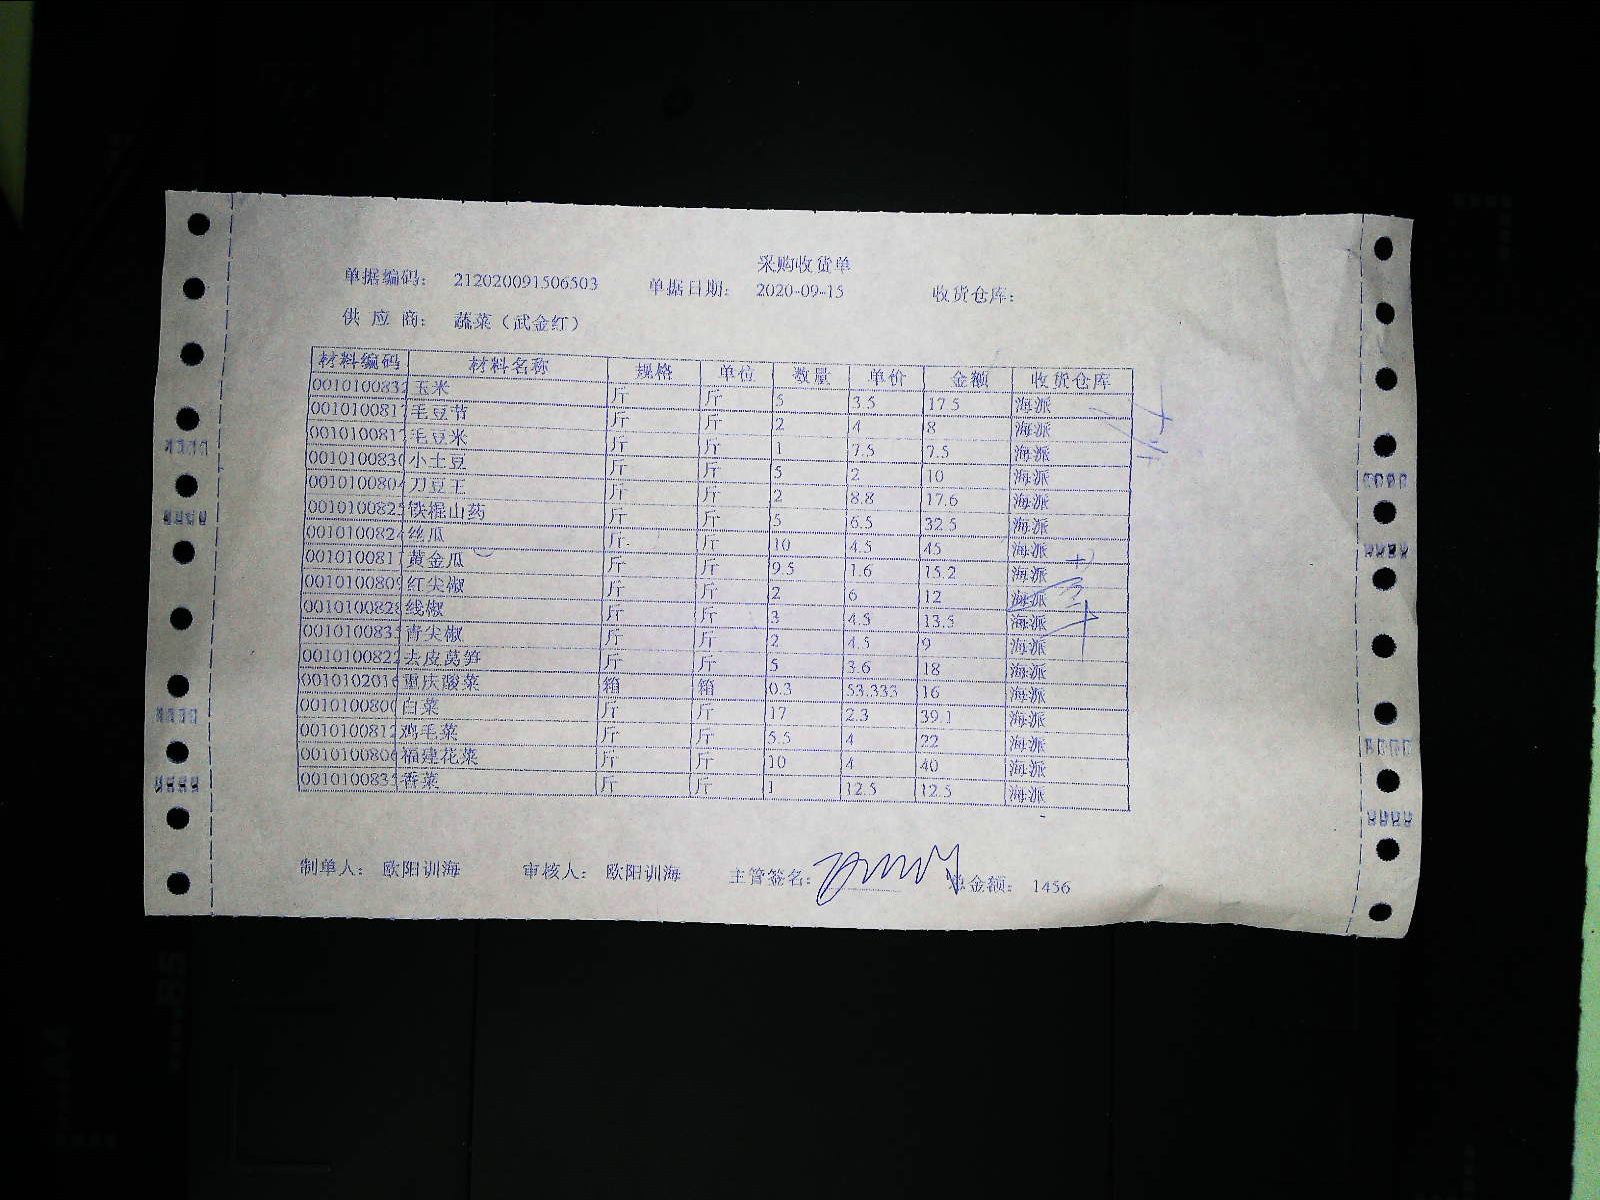 采购收货单
单据编码： 212020091506503 单据日期： 2020-09-15 收货仓库：
供 应 商： 蔬菜（武金红）
材料编码 材料名称 规格 单位 数量 单价 金额 收货仓库
001010083 玉米 斤 斤 5 3.5 17.5 海派
001010081 毛豆节 斤 斤 2 4 8 海派
001010081 毛豆米 斤 斤 1 7.5 7.5 海派
001010083 小土豆 斤 斤 5 2 10 海派
001010080 刀豆王 斤 斤 2 8.8 17.6 海派
001010082 铁棍山药 斤 斤 5 6.5 32.5 海派
001010082 丝瓜 斤 斤 10 4.5 45 海派
001010081 黄金瓜 斤 斤 9.5 1.6 15.2 海派
001010080 红尖椒 斤 斤 2 6 12 海派
001010082 线椒 斤 斤 3 4.5 13.5 海派
001010083 青尖椒 斤 斤 2 4.5 9 海派
001010082 去皮莴笋 斤 斤 5 3.6 18 海派
001010201 重庆酸菜 箱 箱 0.3 53.333 16 海派
001010080 白菜 斤 斤 17 2.3 39.1 海派
001010081 鸡毛菜 斤 斤 5.5 4 22 海派
001010080 福建花菜 斤 斤 10 4 40 海派
001010083 香菜 斤 斤 1 12.5 12.5 海派
制单人： 欧阳训海 审核人： 欧阳训海 主管签名： 总金额： 1456